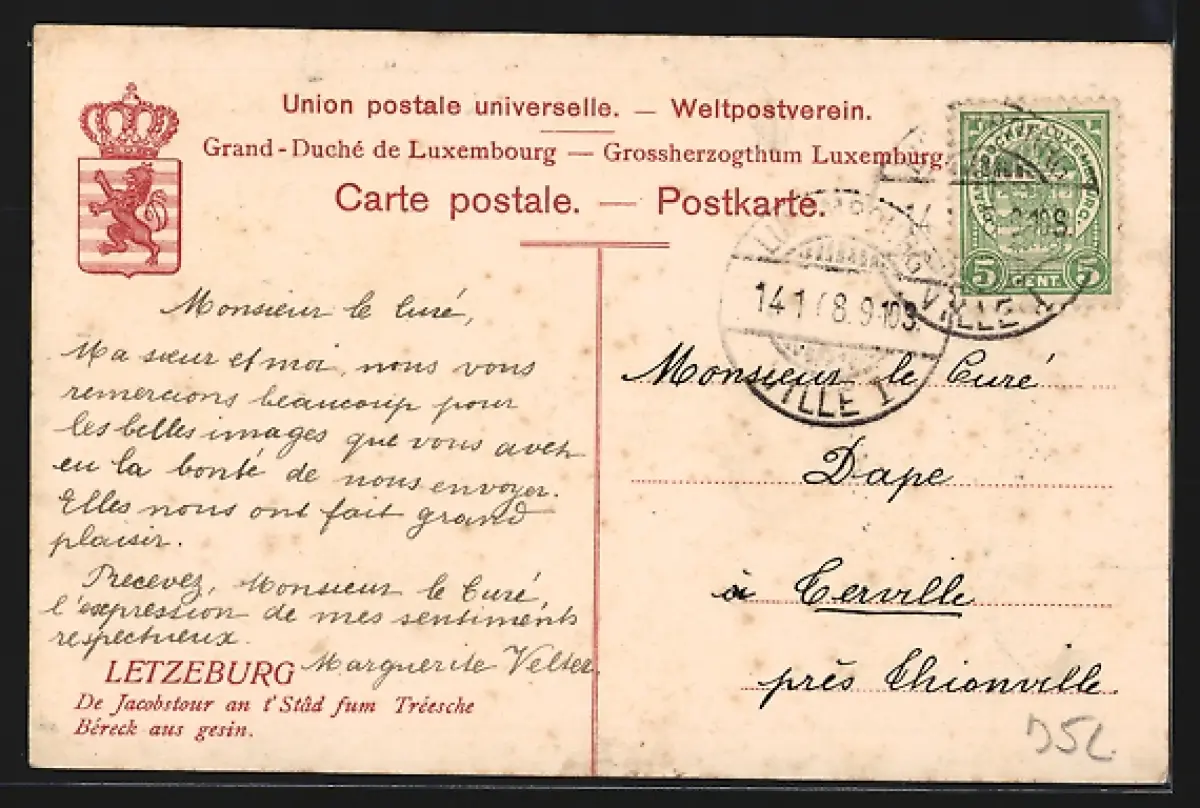 Union postale universelle. — Weltpostverein.
Grand-Duché de Luxembourg — Grossherzogthum Luxemburg.
Carte postale. — Postkarte.
5 CENT. 5
VILLE I
VILLE I
Monsieur le Curé,
Ma sœur et moi, nous vous
remercions beaucoup pour
les belles images que vous avez
eu la bonté de nous envoyer.
Elles nous ont fait grand
plaisir.
Recevez, Monsieur le Curé,
l'expression de mes sentiments
respectueux.
Marguerite Velter.
LETZEBURG
De Jacobstour an t'Stâd fum Tréesche
Béreck aus gesin.
Monsieur le Curé
Dape
à Terville
près Thionville.